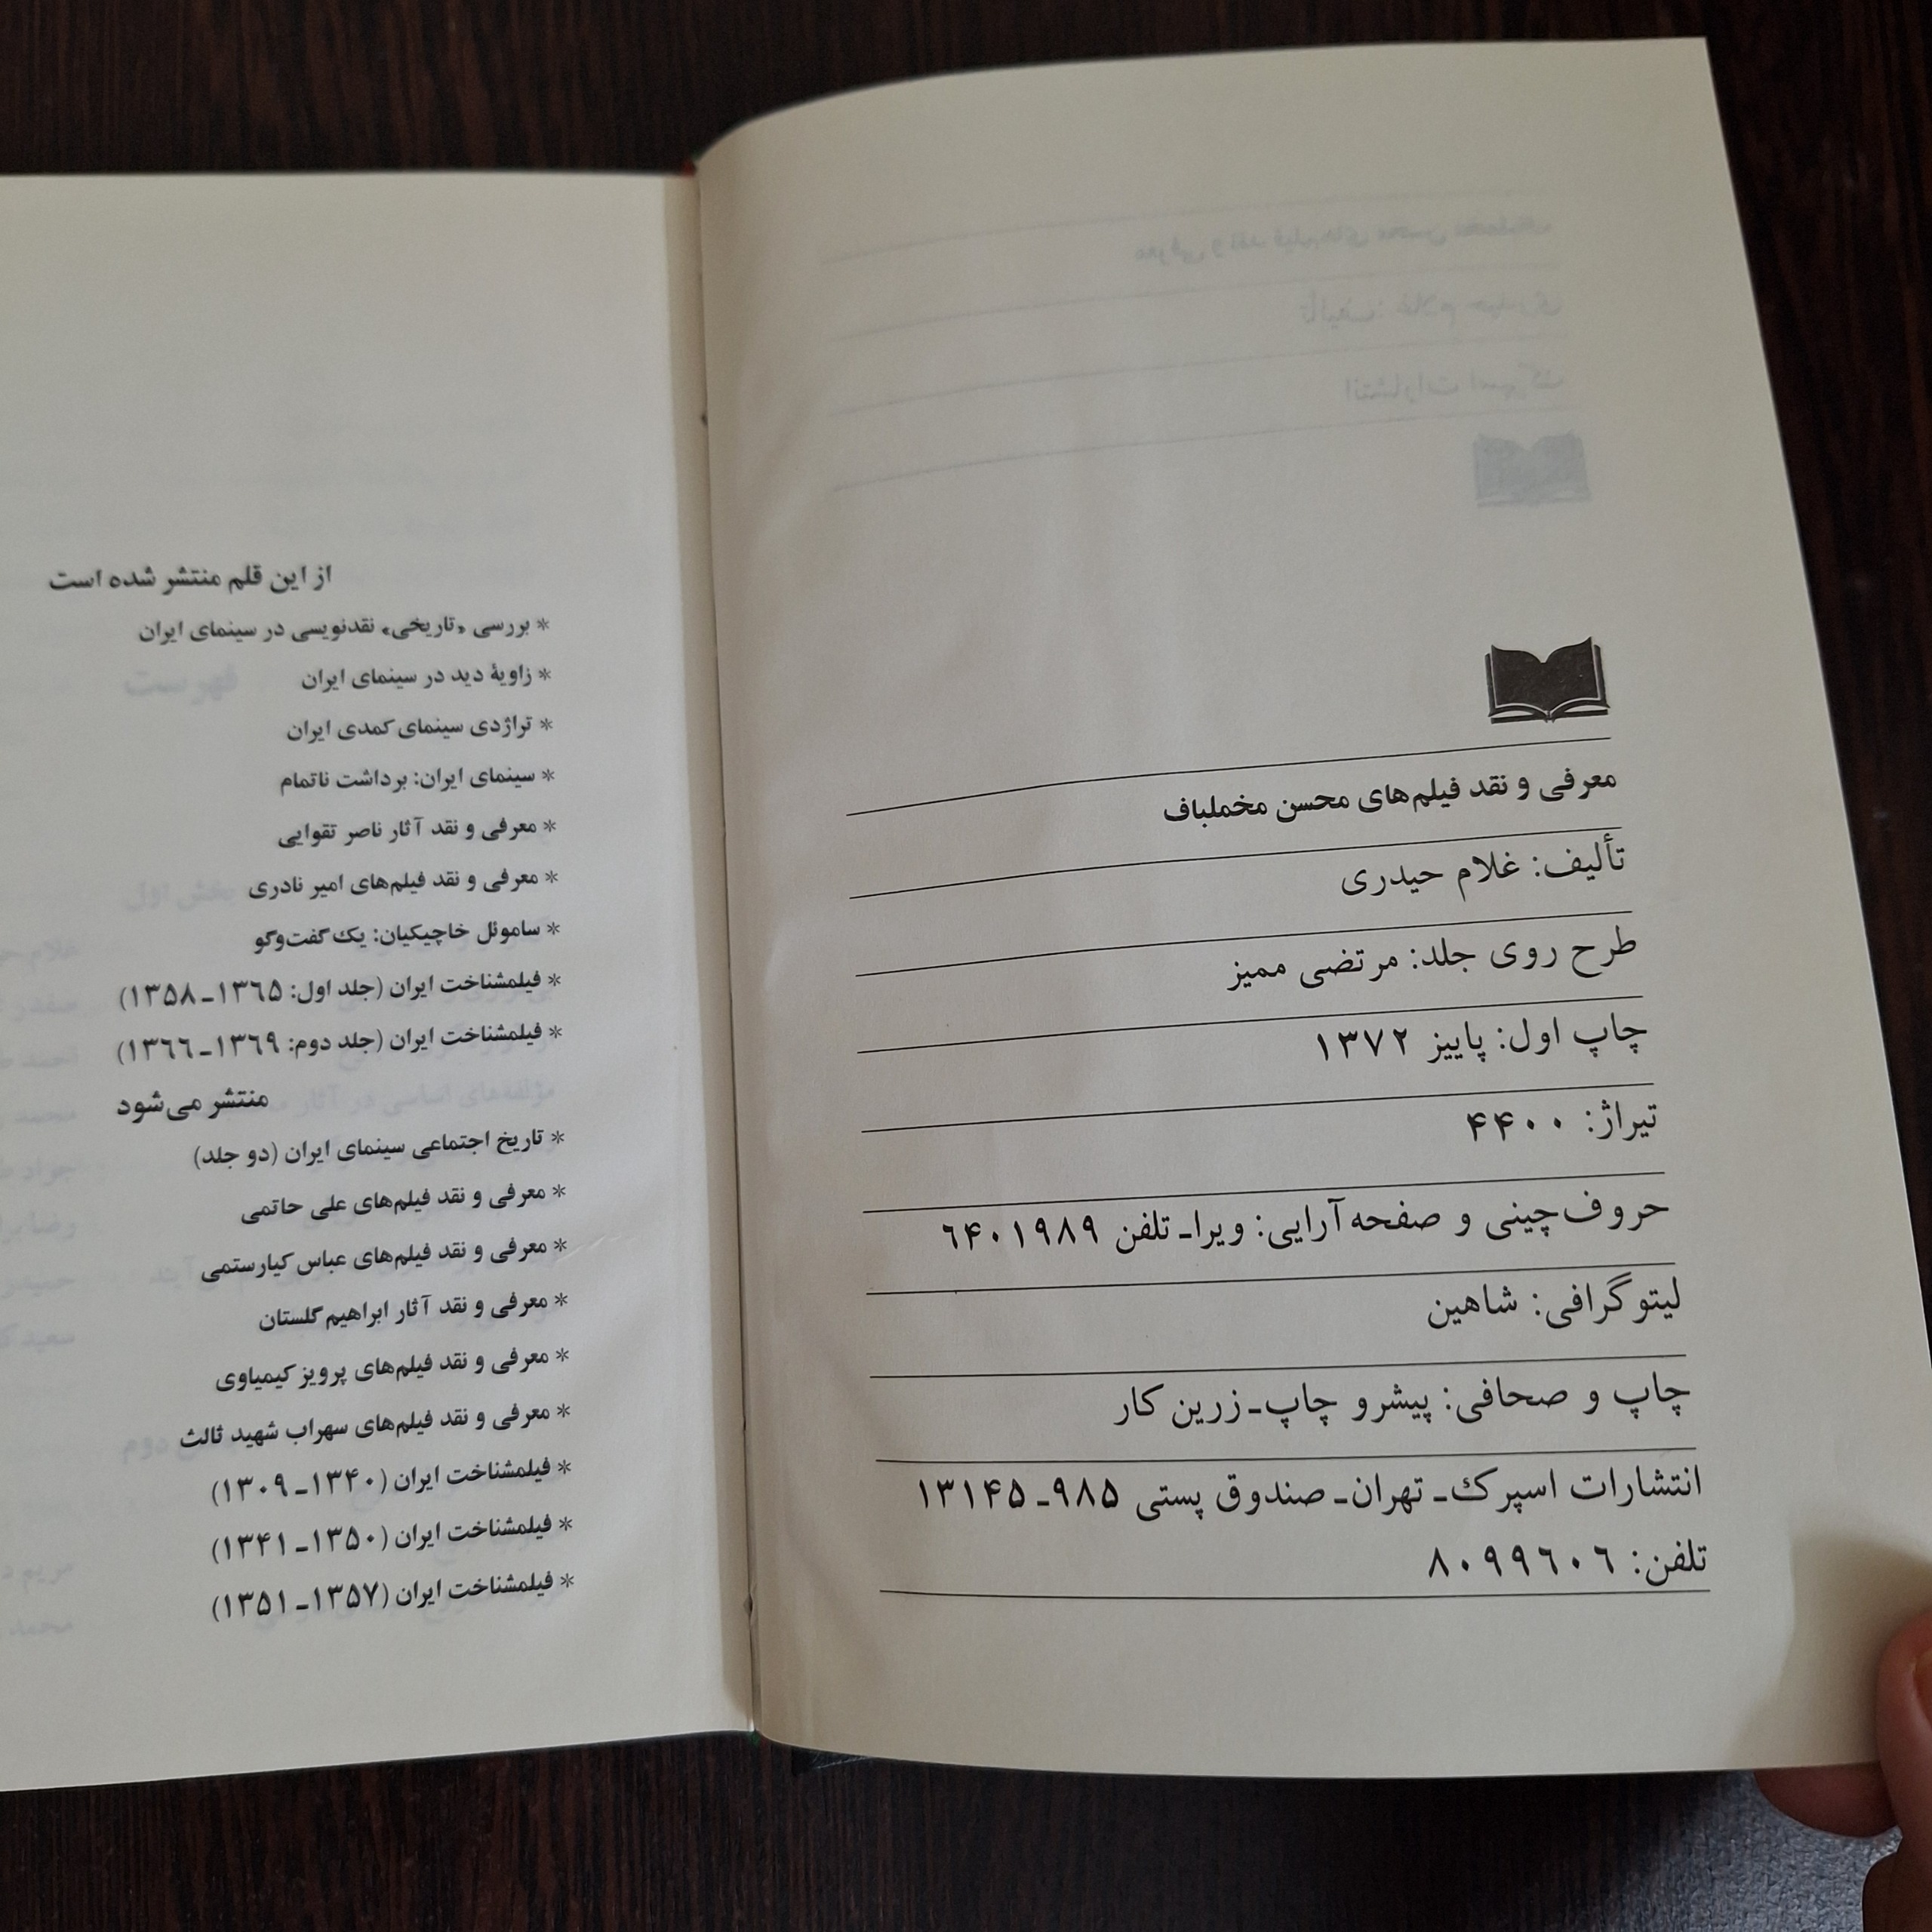 معرفی و نقد فیلم‌های محسن مخملباف
تألیف: غلام حیدری
طرح روی جلد: مرتضی ممیز
چاپ اول: پاییز ۱۳۷۲
تیراژ: ۴۴۰۰
حروف‌چینی و صفحه‌آرایی: ویراـ تلفن ۶۴۰۱۹۸۹
لیتوگرافی: شاهین
چاپ و صحافی: پیشرو چاپ‌ـ زرین کار
انتشارات اسپرک‌ـ تهران‌ـ صندوق پستی ۹۸۵ـ ۱۳۱۴۵
تلفن: ۸۰۹۹۶۰۶
از این قلم منتشر شده است
* بررسی «تاریخی» نقدنویسی در سینمای ایران
* زاویهٔ دید در سینمای ایران
* تراژدی سینمای کمدی ایران
* سینمای ایران: برداشت ناتمام
* معرفی و نقد آثار ناصر تقوایی
* معرفی و نقد فیلم‌های امیر نادری
* ساموئل خاچیکیان: یک گفت‌وگو
* فیلمشناخت ایران (جلد اول: ۱۳۶۵ـ ۱۳۵۸)
* فیلمشناخت ایران (جلد دوم: ۱۳۶۹ـ ۱۳۶۶)
منتشر می‌شود
* تاریخ اجتماعی سینمای ایران (دو جلد)
* معرفی و نقد فیلم‌های علی حاتمی
* معرفی و نقد فیلم‌های عباس کیارستمی
* معرفی و نقد آثار ابراهیم گلستان
* معرفی و نقد فیلم‌های پرویز کیمیاوی
* معرفی و نقد فیلم‌های سهراب شهید ثالث
* فیلمشناخت ایران (۱۳۴۰ـ ۱۳۰۹)
* فیلمشناخت ایران (۱۳۵۰ـ ۱۳۴۱)
* فیلمشناخت ایران (۱۳۵۷ـ ۱۳۵۱)